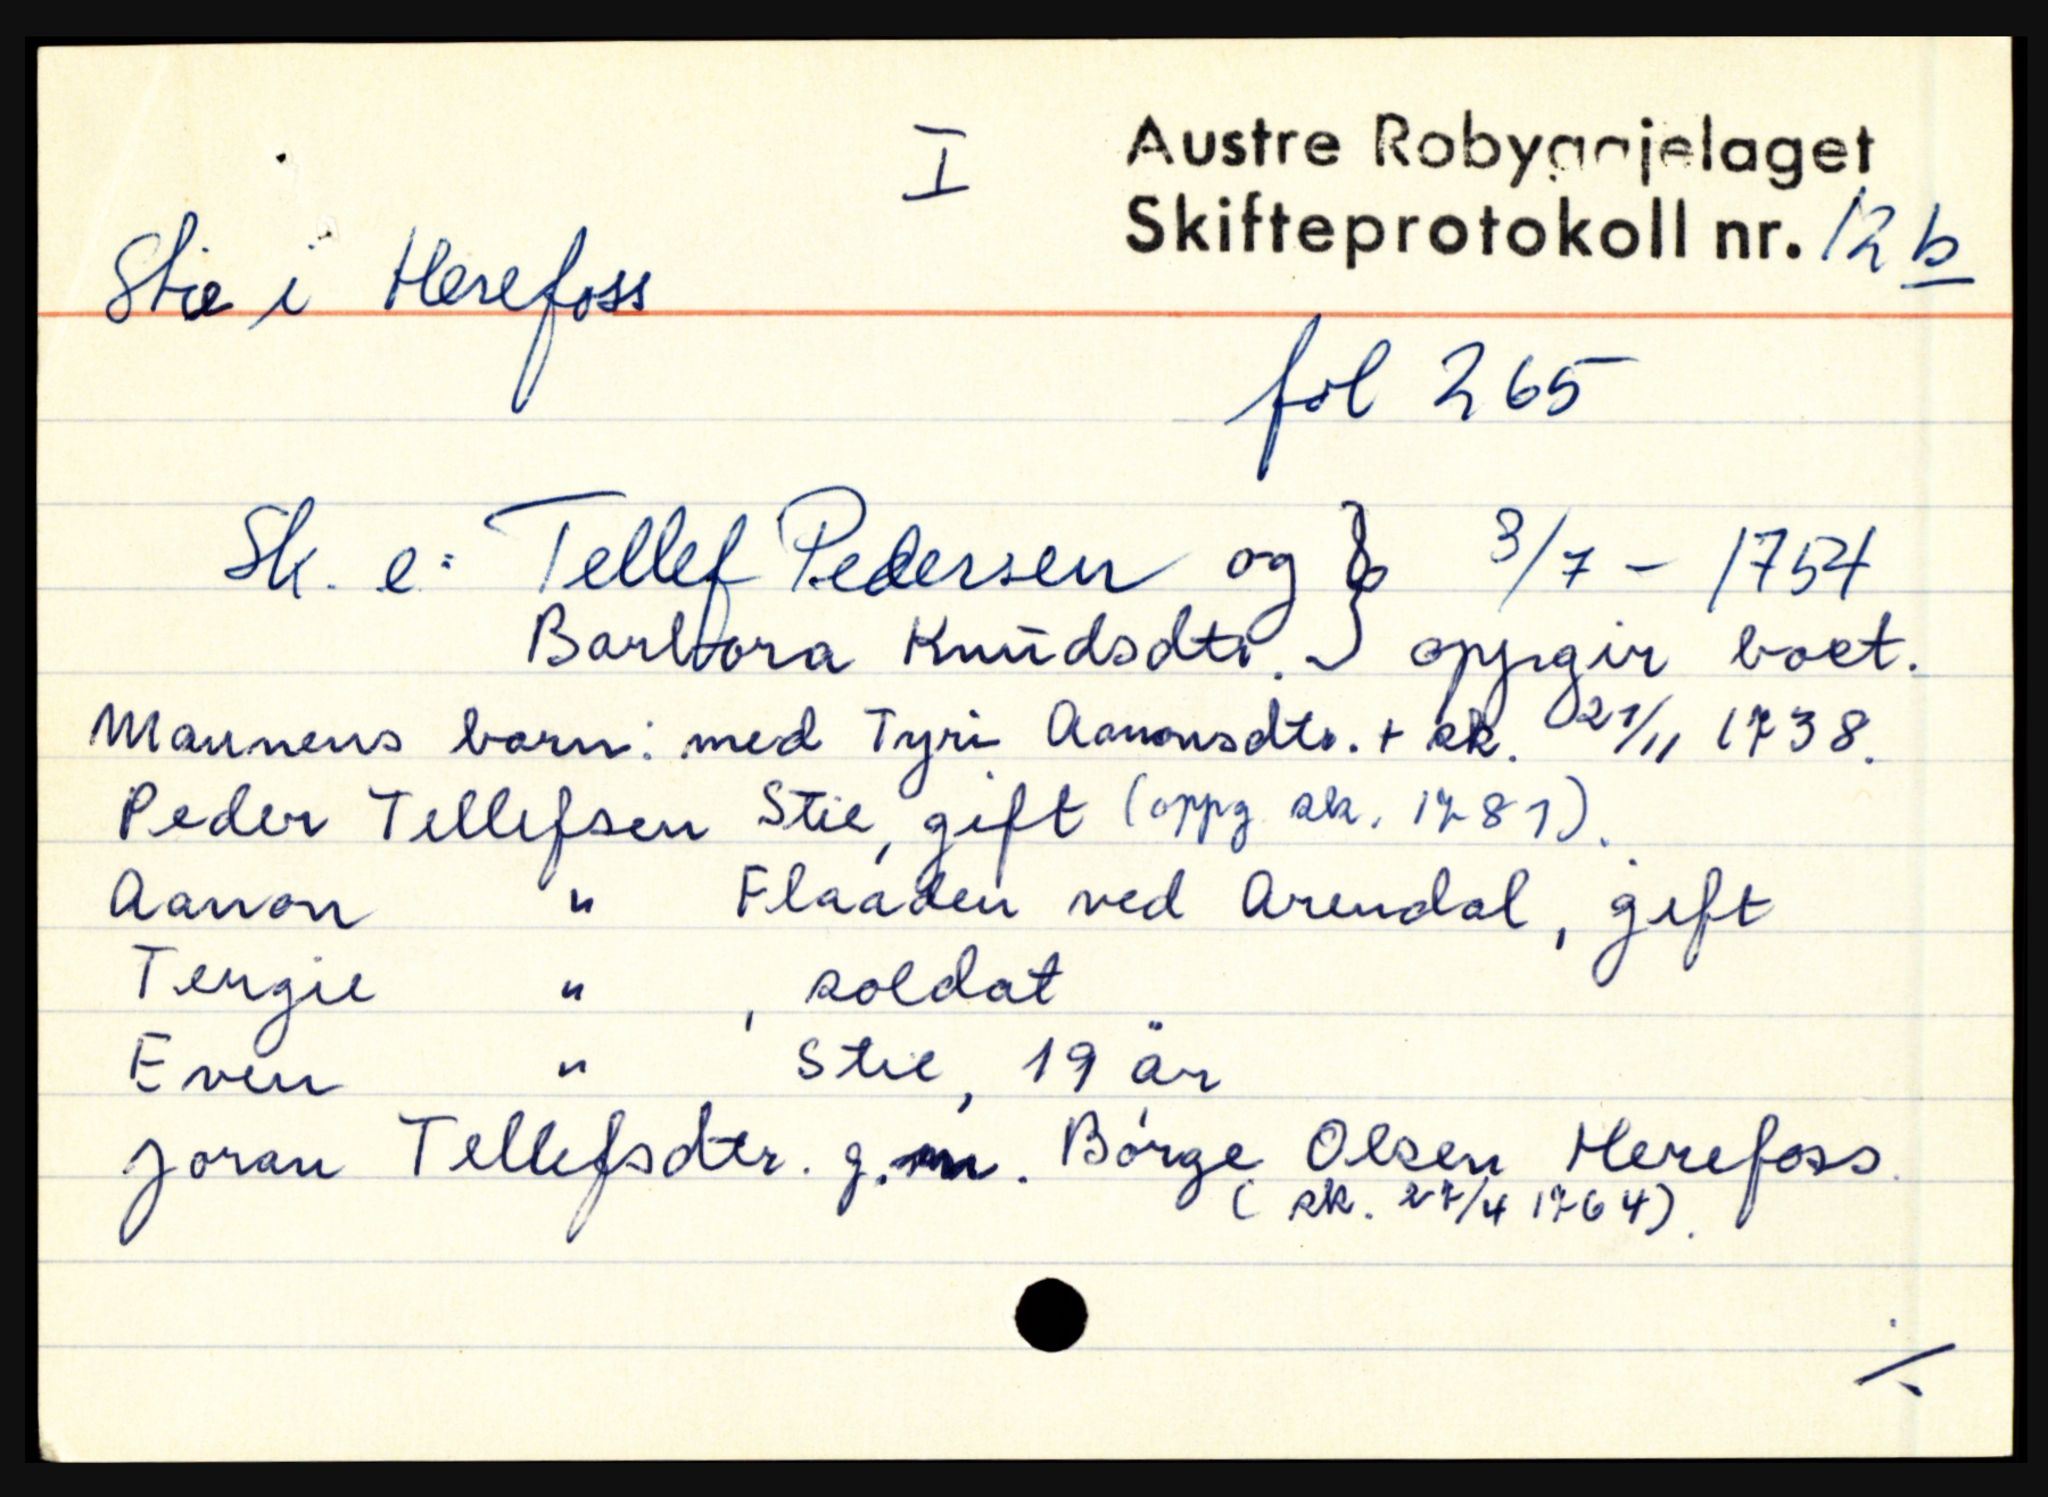 I
Austre Robyggjelaget
Skifteprotokoll nr. 12 b
Stie i Herefoss
fol 265
Sk. e: Tellef Pedersen og } 3/7 - 1754
Barbora Knudsdtr. } oppgir boet.
Mannens barn: med Tyri Aanonsdtr. + sk. 21/11 1738.
Peder Tellefsen Stie, gift (oppg sk. 1781).
Aanon " Flaaden ved Arendal, gift
Tergie " , soldat
Even " Stie, 19 år
Joran Tellefsdtr. g.m. Børge Olsen Herefoss.
(sk. 27/4 1764).
./.